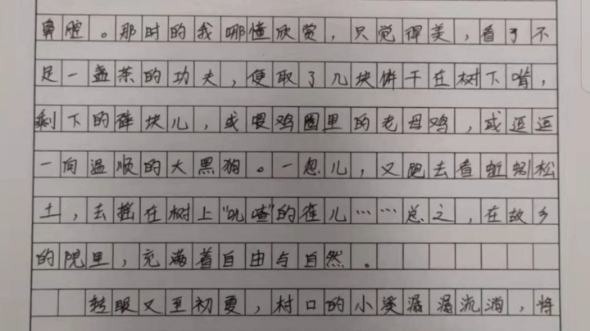 鼻腔。那时的我哪懂欣赏,只觉得美,看了不
足一盏茶的功夫,便取了几块饼干在树下啃,
剩下的碎块儿,或喂鸡圈里的老母鸡,或逗逗
一向温顺的大黑狗。一忽儿,又跑去看蚯蚓松
土,去摇在树上“叽喳”的雀儿……总之,在故乡
的院里,充满着自由与自然。
转眼又至初夏,村口的小溪潺潺流淌,将